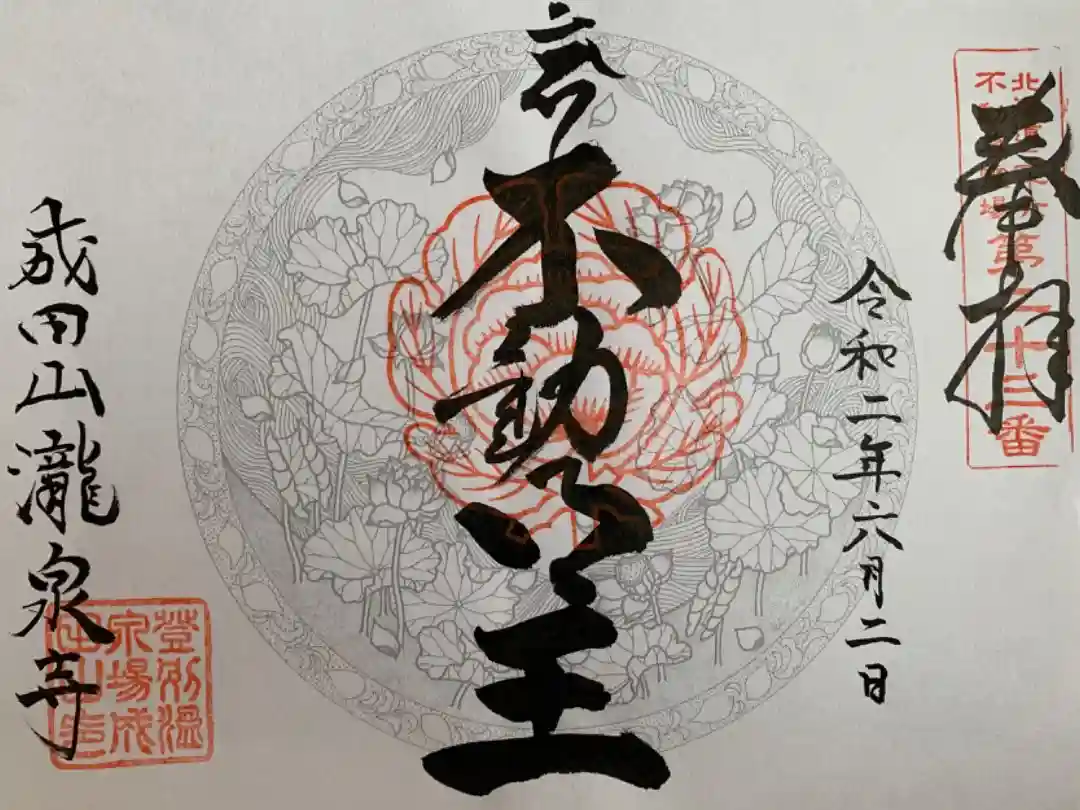 奉拝
第二十三番
令和二年六月二日
不動明王
成田山瀧泉寺
登別温
泉場成
田山